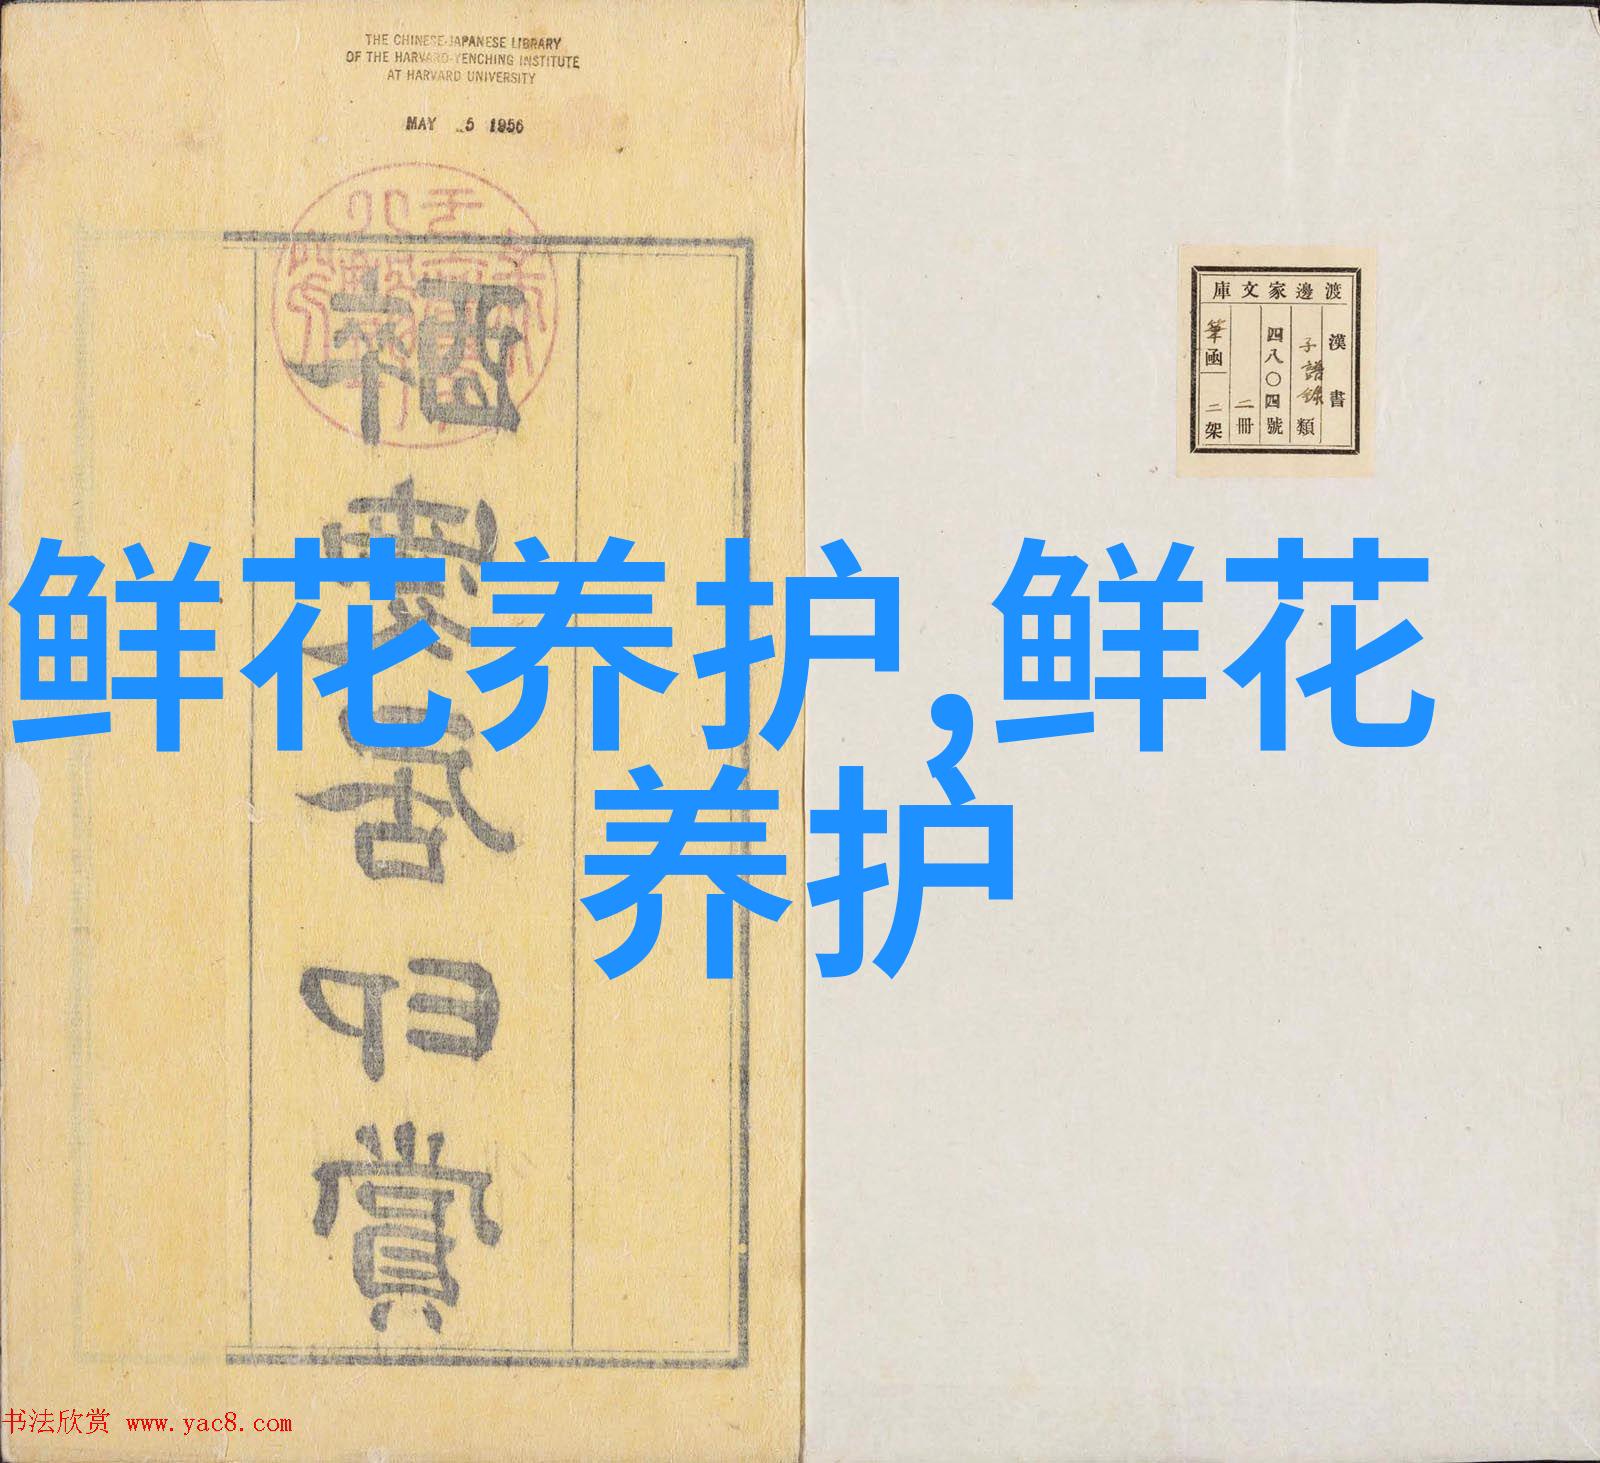 THE CHINESE-JAPANESE LIBRARY
OF THE HARVARD-YENCHING INSTITUTE
AT HARVARD UNIVERSITY
MAY 25 1956
居印賞
渡邊家文庫
漢書
子譜錄類
四八〇四號
二冊
筆函二架
鲜花养护,鲜花
养护
书法欣赏 www.yac8.com